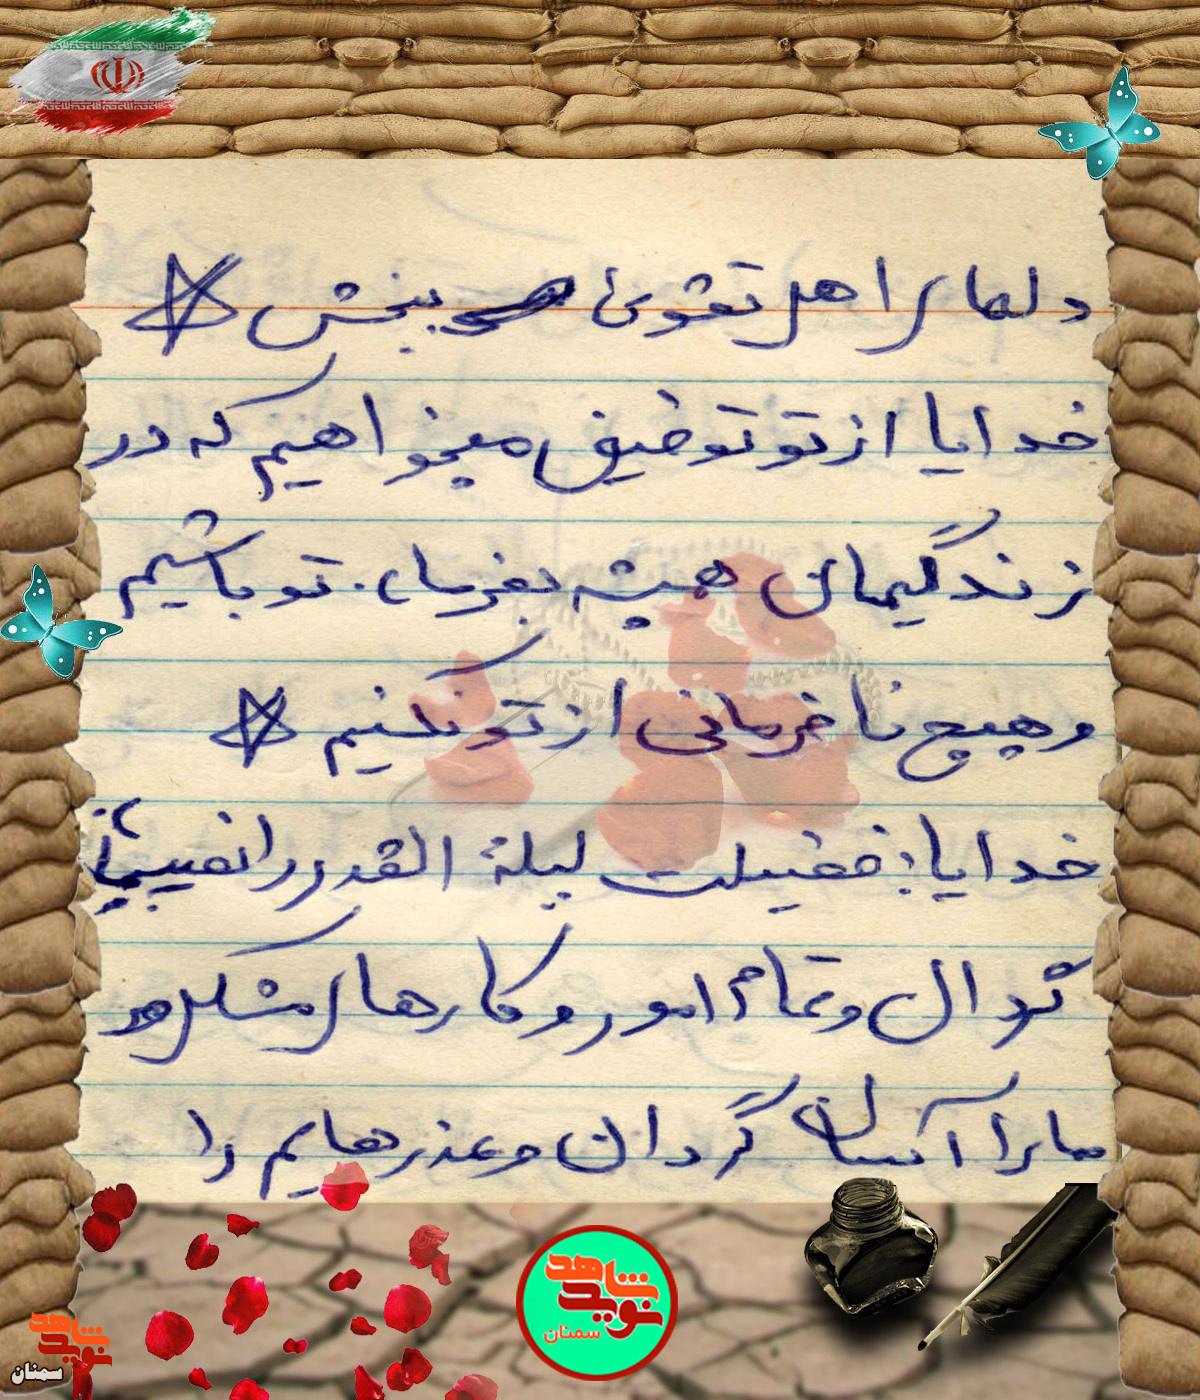 دلهای اهل تقوی ببخش
خدایا از تو توفیق میخواهیم که در
زندگیمان همیشه بفرمان تو باشیم
و هیچ نافرمانی از تو نکنیم
خدایا: فضیلت لیلة القدر را نصیبمان
گردان و تمام امور و کارهای مشکل
ما را آسان گردان و عذرهایم را
شاهد
نوید
سمنان
شاهد
نوید
سمنان